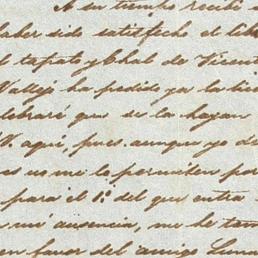 A su tiempo recibí
haber sido satisfecho el lib
Vallejo ha pedido ya la lic
lebrará que se la hagan
V. aquí, pues aunque yo d
es no me lo permiten por
para el 1º del que entra
mi ausencia, me he tom
en favor del amigo Luna